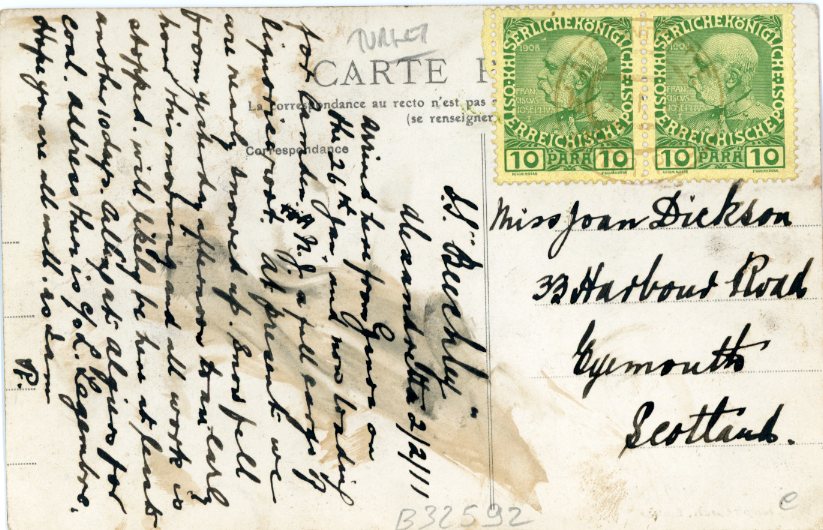 TURKEY
CARTE P
La correspondance au recto n'est pas
(se renseigner
Correspondance
KAISERLICHE KÖNIGLICHE ÖSTERREICHISCHE POST
1908
FRAN
CISCUS
IOSEPH I
10 PARA 10
KAISERLICHE KÖNIGLICHE ÖSTERREICHISCHE POST
1908
FRAN
CISCUS
IOSEPH I
10 PARA 10
S.S. "Beechley"
Alexandretta 2/2/11
Arrived here from Genoa on
the 26th Jan and now loading
for Camden N.J. a full cargo of
liquorice root. At present we
are nearly snowed up. Snow fell
from yesterday afternoon to an early
hour this morning and all work is
stopped. Will likely be here at least
another 10 days. Calling at Algiers for
coal. Address there is c/o L.
Hope you are all well as I am
P.
Miss Joan Dickson
33 Harbour Road
Eyemouth
Scotland.
B32592
e